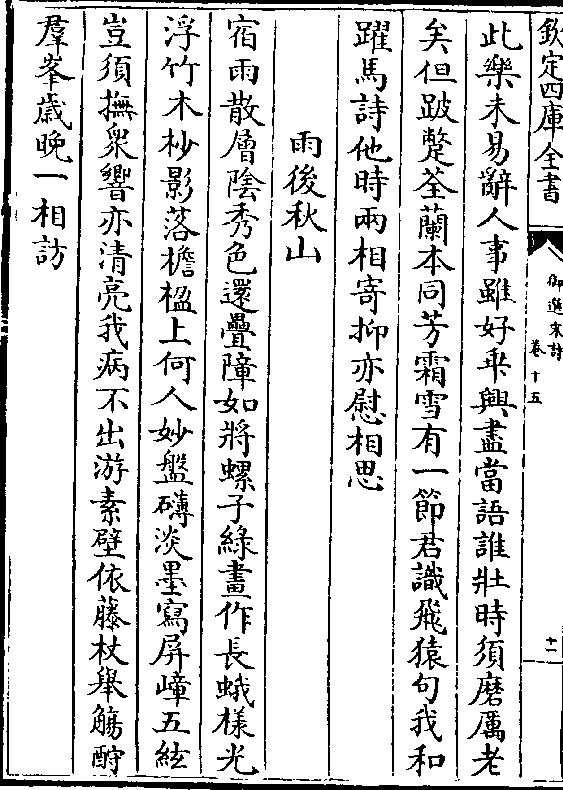 欽定四庫全書
御選宋詩
卷十五
十一
此樂未易辭人事雖好乖興盡當語誰壯時須磨厲老
矣但跛躄荃蘭本同芳霜雪有一節君識飛猿句我和
躍馬詩他時兩相寄抑亦慰相思
雨後秋山
宿雨散層陰秀色還疊障如將螺子綠畫作長蛾様光
浮竹木杪影落檐楹上何人妙盤礴淡墨寫屏嶂五絃
豈須撫衆響亦清亮我病不出游素壁依藤杖舉觴酹
羣峯歲晚一相訪